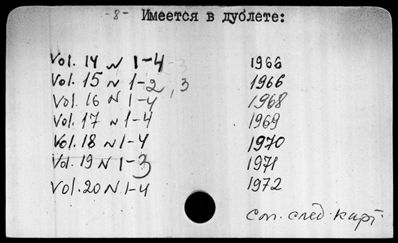 -8- Имеется в дублете:
Vol. 14 N 1-4 1966
Vol. 15 N 1-2,3 1966
Vol. 16 N 1-4 1968
Vol. 17 N 1-4 1969
Vol. 18 N 1-4 1970
Vol. 19 N 1-3 1971
Vol. 20 N 1-4 1972
См. след. карт.